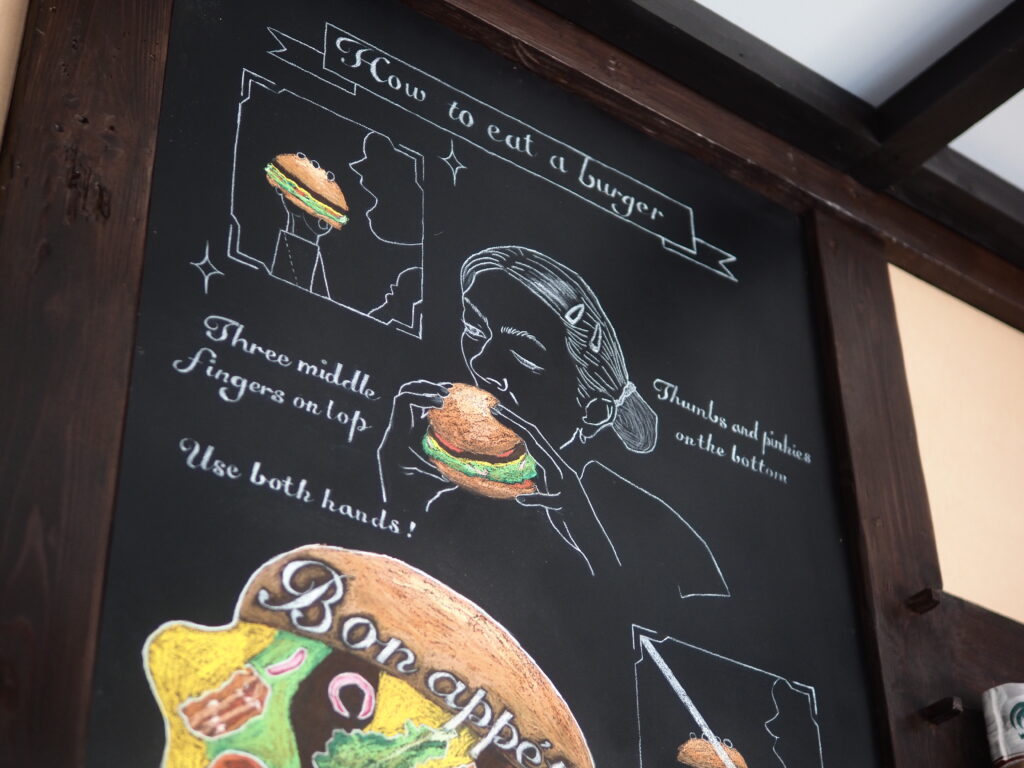 How to eat a burger
Three middle
fingers on top
Thumbs and pinkies
on the bottom
Use both hands!
Bon appé